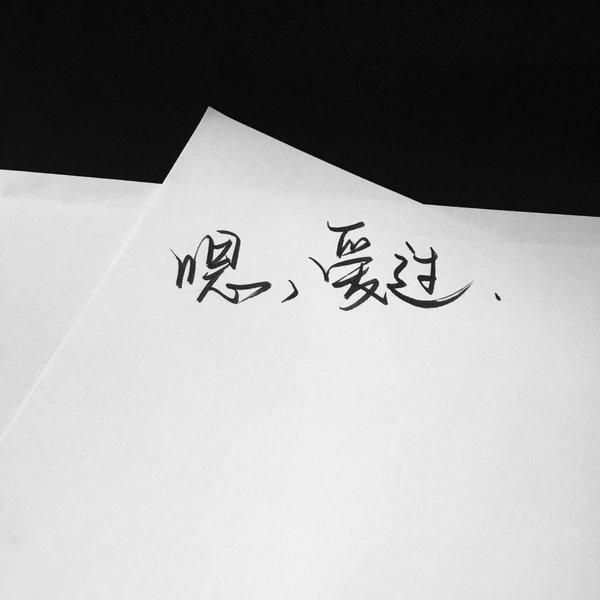 嗯、爱过.